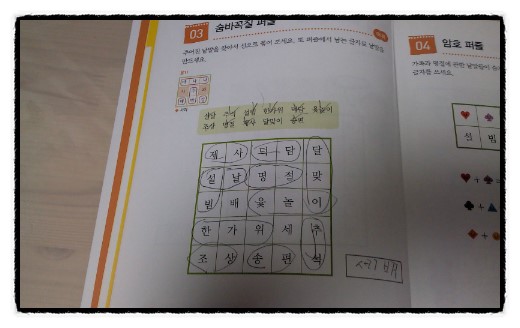 03 숨바꼭질 퍼즐
주어진 낱말을 찾아서 선으로 묶어 보세요. 또 퍼즐에서 남는 글자로 낱말을
만드세요.
덕담 추석 설빔 한가위 제사 윷놀이
조상 명절 설날 달맞이 송편
제 사 덕 담 달
설 날 명 절 맞
빔 배 윷 놀 이
한 가 위 세 추
조 상 송 편 석
세배
04 암호 퍼즐
가족과 명절에 관한 낱말들이
글자를 쓰세요.
설 빔